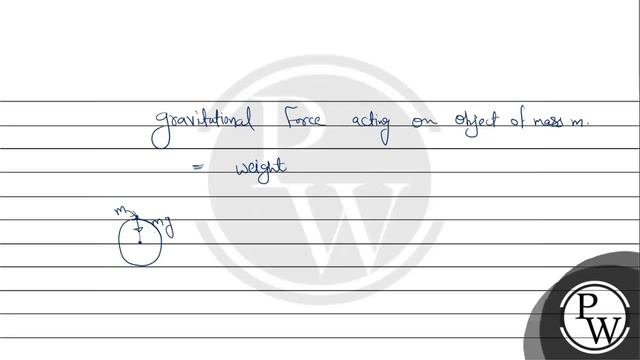 gravitational Force acting on object of mass m.
= weight
m
mg
P
W
P
W